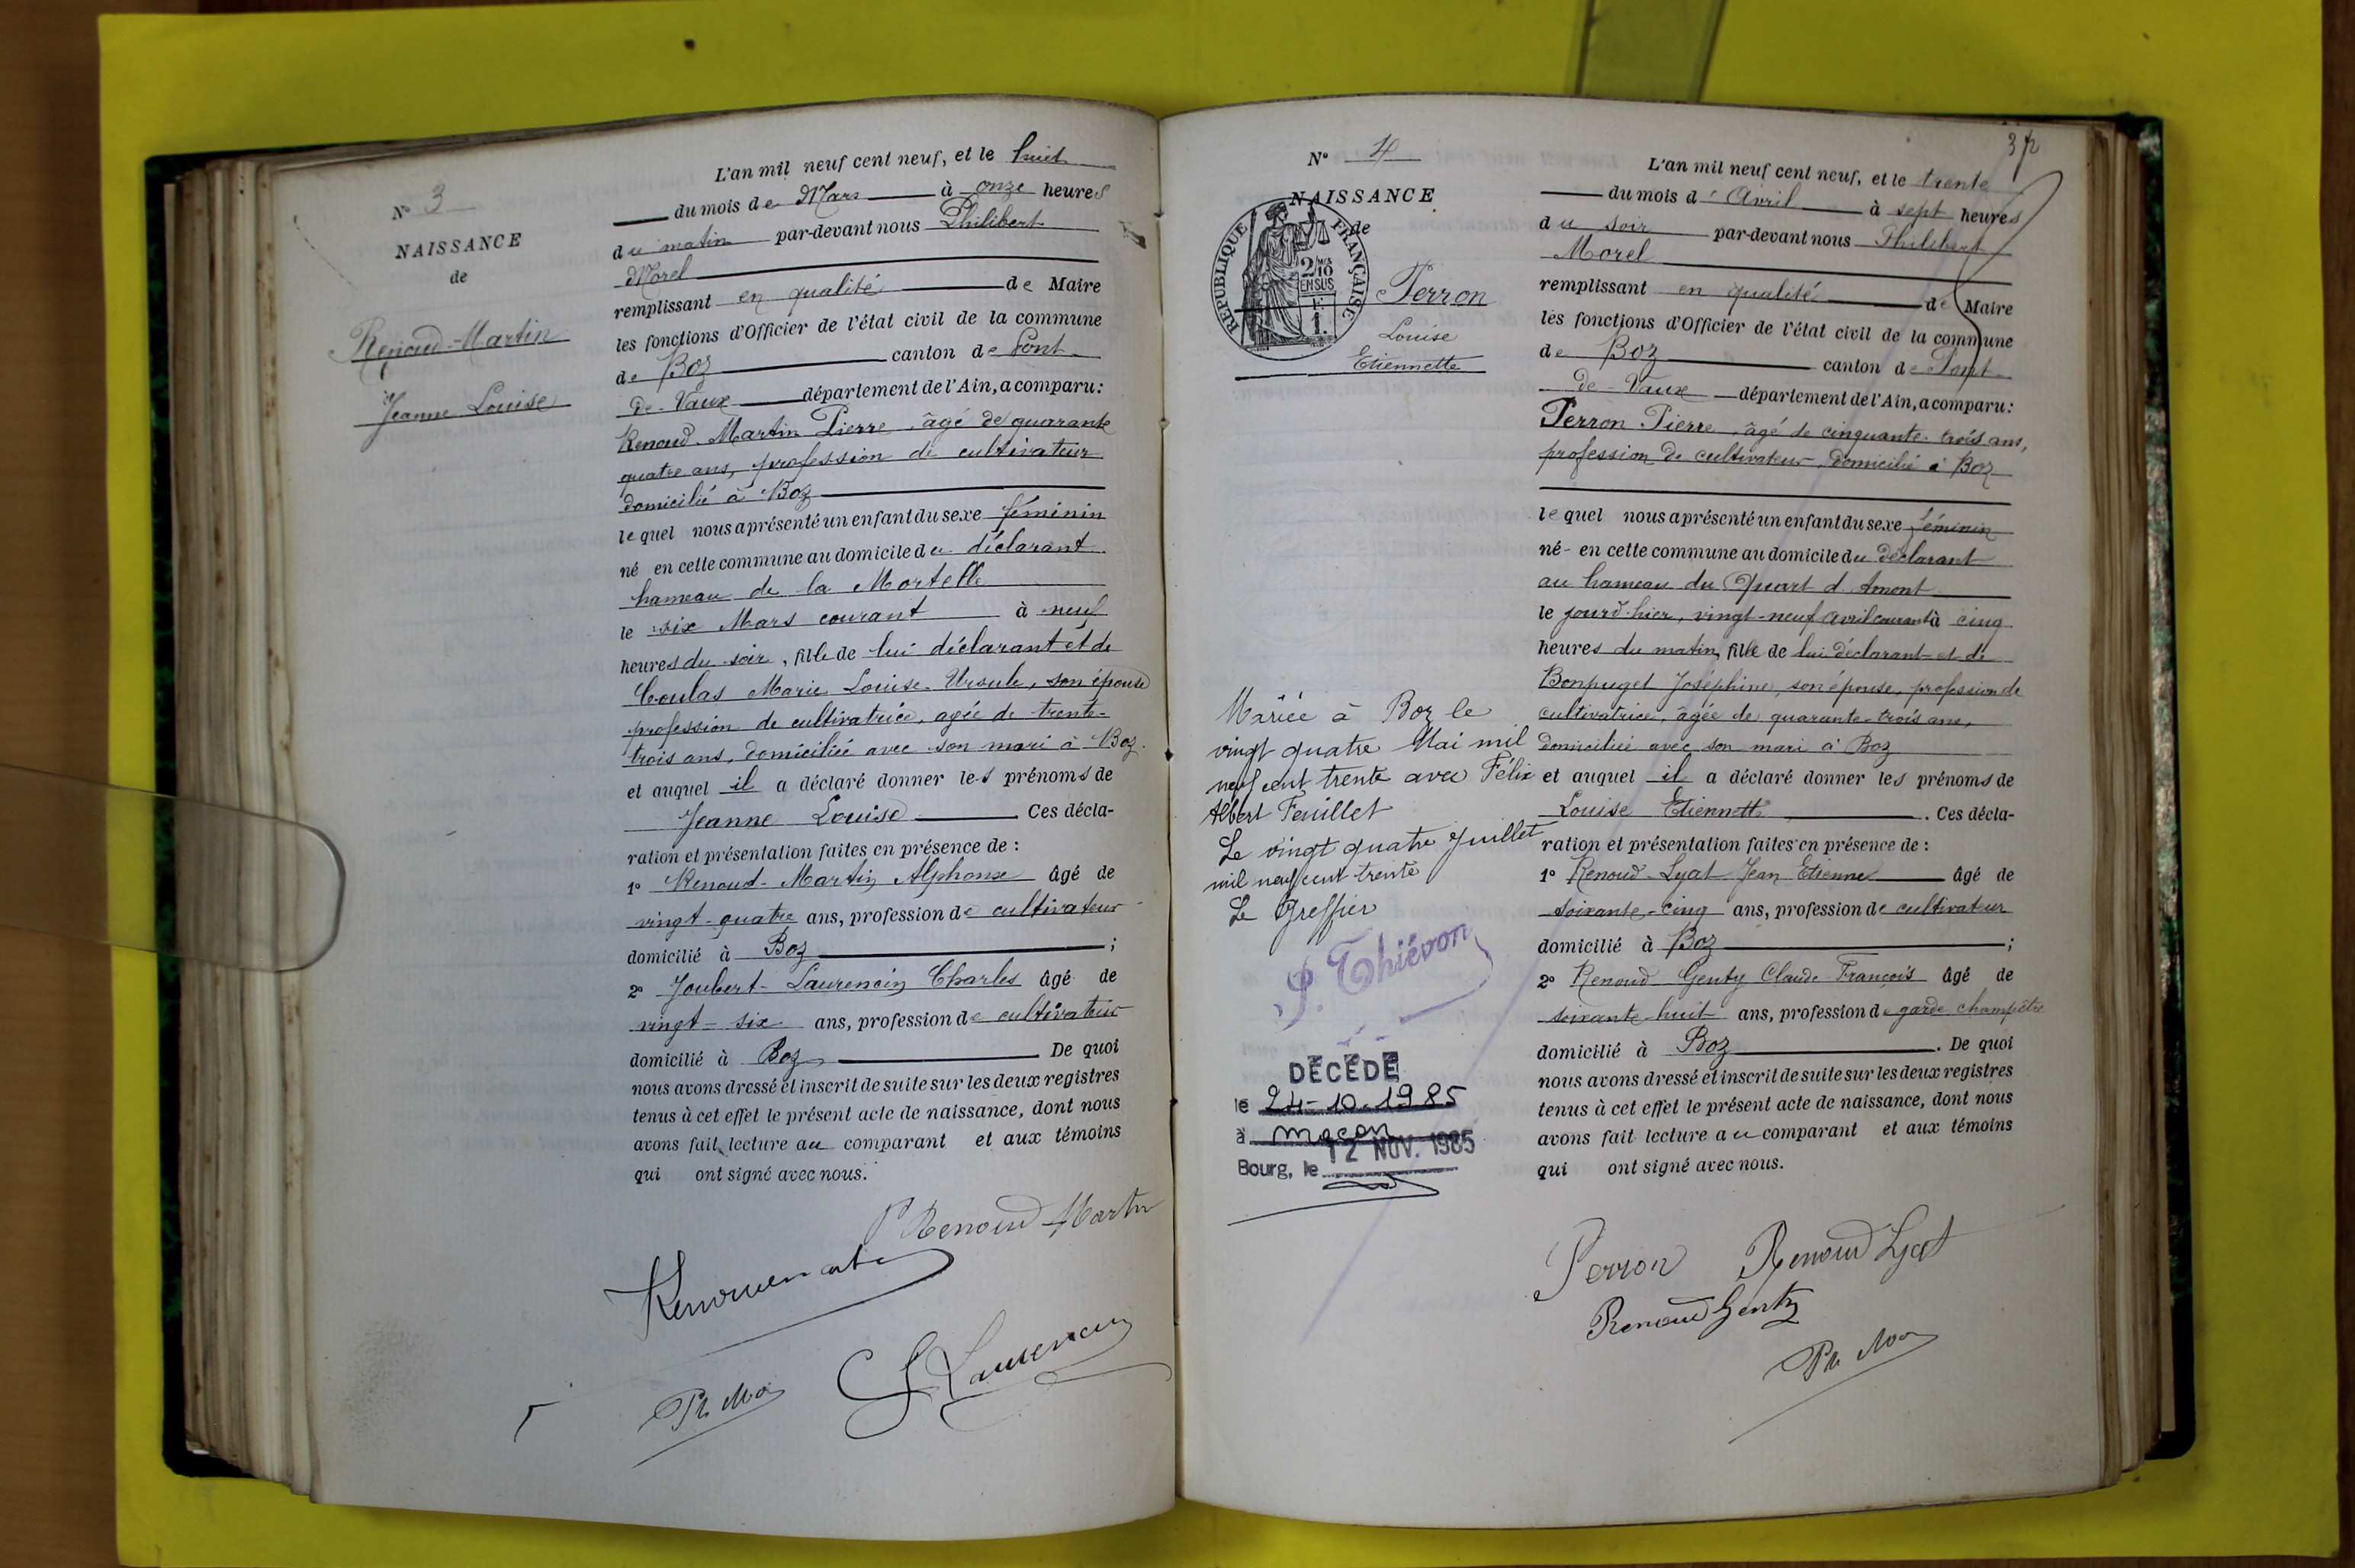 N° 3
NAISSANCE
de
Renoud-Martin
Jeanne Louise
L'an mil neuf cent neuf, et le huit
du mois de Mars à onze heures
du matin par-devant nous Philibert
Morel
remplissant en qualité de Maire
les fonctions d'Officier de l'état civil de la commune
de Boz canton de Pont-
de-Vaux département de l'Ain, a comparu:
Renoud-Martin Pierre âgé de quarante
quatre ans, profession de cultivateur
domicilié à Boz
lequel nous a présenté un enfant du sexe féminin
né en cette commune au domicile du déclarant
hameau de la Mortelle
le six Mars courant à neuf
heures du soir, fille de lui déclarant et de
Coulas Marie Louise-Ursule, son épouse
profession de cultivatrice, agée de trente-
trois ans, domiciliée avec son mari à Boz.
et auquel il a déclaré donner les prénoms de
Jeanne Louise. Ces décla-
ration et présentation faites en présence de :
1° Renoud-Martin Alphonse âgé de
vingt-quatre ans, profession de cultivateur
domicilié à Boz ;
2° Joubert-Laurencin Charles âgé de
vingt-six ans, profession de cultivateur
domicilié à Boz. De quoi
nous avons dressé et inscrit de suite sur les deux registres
tenus à cet effet le présent acte de naissance, dont nous
avons fait lecture au comparant et aux témoins
qui ont signé avec nous.
P Renoud Martin
Laurencin
37
N° 4
NAISSANCE
de
REPUBLIQUE FRANÇAISE
2/10
EN SUS
1F.
Perron
Louise
Etiennette
L'an mil neuf cent neuf, et le trente
du mois d'Avril à sept heures
du soir par-devant nous Philibert
Morel
remplissant en qualité de Maire
les fonctions d'Officier de l'état civil de la commune
de Boz canton de Pont-
de-Vaux département de l'Ain, a comparu:
Perron Pierre, âgé de cinquante-trois ans,
profession de cultivateur, domicilié à Boz
lequel nous a présenté un enfant du sexe féminin
né en cette commune au domicile du déclarant
au hameau du Quart d'Amont
le jourd'hier, vingt-neuf avril courant à cinq
heures du matin, fille de lui déclarant et de
Bonpuget Joséphine, son épouse, profession de
cultivatrice, âgée de quarante-trois ans,
domiciliée avec son mari à Boz
et auquel il a déclaré donner les prénoms de
Louise Etiennette. Ces décla-
ration et présentation faites en présence de :
1° Renoud-Lyat Jean Etienne âgé de
soixante-cinq ans, profession de cultivateur
domicilié à Boz ;
2° Renoud Genty Claude-François âgé de
soixante-huit ans, profession de garde champêtre
domicilié à Boz. De quoi
nous avons dressé et inscrit de suite sur les deux registres
tenus à cet effet le présent acte de naissance, dont nous
avons fait lecture au comparant et aux témoins
qui ont signé avec nous.
Mariée à Boz le
vingt quatre Mai mil
neuf cent trente avec Félix
Albert Feuillet
Le vingt quatre Juillet
mil neuf cent trente
Le Greffier
P. Thiévon
DÉCÉDÉ
le 24-10-1985
à macon
Bourg, le 12 NOV. 1985
Perron Renoud Lyat
Renoud Genty